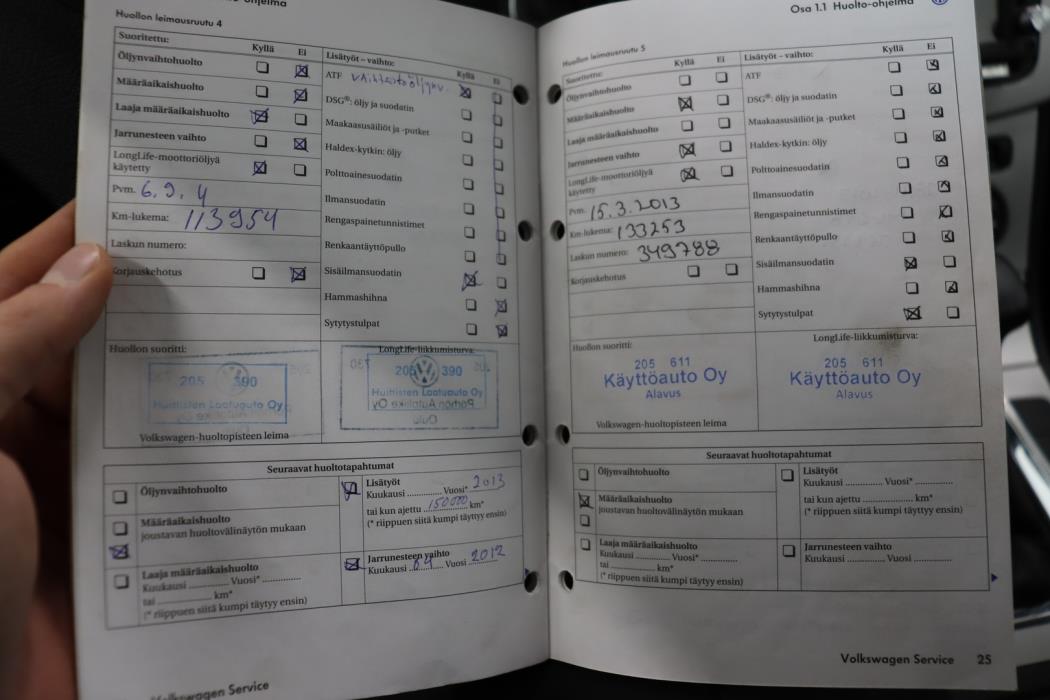 ohjelma
Huollon leimausruutu 4
Suoritettu: Kyllä Ei
Öljynvaihtohuolto
Määräaikaishuolto
Laaja määräaikaishuolto
Jarrunesteen vaihto
LongLife-moottoriöljyä
käytetty
Pvm. 6.9.4
Km-lukema: 113954
Laskun numero:
Korjauskehotus
Lisätyöt – vaihto: Kyllä Ei
ATF
DSG®: öljy ja suodatin
Maakaasusäiliöt ja -putket
Haldex-kytkin: öljy
Polttoainesuodatin
Ilmansuodatin
Rengaspainetunnistimet
Renkaantäyttöpullo
Sisäilmansuodatin
Hammashihna
Sytytystulpat
Huollon suoritti:
205 390
Huittisten Laatuauto Oy
Volkswagen-huoltopisteen leima
LongLife-liikkumisturva:
205 390
Huittisten Laatuauto Oy
Seuraavat huoltotapahtumat
Öljynvaihtohuolto
Määräaikaishuolto
joustavan huoltovälinäytön mukaan
Laaja määräaikaishuolto
Kuukausi ............ Vuosi* ............
tai ............ km*
(* riippuen siitä kumpi täytyy ensin)
Lisätyöt
Kuukausi ............ Vuosi* 2013
tai kun ajettu 150000 km*
(* riippuen siitä kumpi täytyy ensin)
Jarrunesteen vaihto
Kuukausi 09 Vuosi 2012
Volkswagen Service
Osa 1.1 Huolto-ohjelma
Huollon leimausruutu 5
Suoritettu: Kyllä Ei
Öljynvaihtohuolto
Määräaikaishuolto
Laaja määräaikaishuolto
Jarrunesteen vaihto
LongLife-moottoriöljyä
käytetty
Pvm. 15.3.2013
Km-lukema: 133253
Laskun numero: 349788
Korjauskehotus
Lisätyöt – vaihto: Kyllä Ei
ATF
DSG®: öljy ja suodatin
Maakaasusäiliöt ja -putket
Haldex-kytkin: öljy
Polttoainesuodatin
Ilmansuodatin
Rengaspainetunnistimet
Renkaantäyttöpullo
Sisäilmansuodatin
Hammashihna
Sytytystulpat
Huollon suoritti:
205 611
Käyttöauto Oy
Alavus
Volkswagen-huoltopisteen leima
LongLife-liikkumisturva:
205 611
Käyttöauto Oy
Alavus
Seuraavat huoltotapahtumat
Öljynvaihtohuolto
Määräaikaishuolto
joustavan huoltovälinäytön mukaan
Laaja määräaikaishuolto
Kuukausi ............ Vuosi* ............
tai ............ km*
(* riippuen siitä kumpi täytyy ensin)
Lisätyöt
Kuukausi ............ Vuosi* ............
tai kun ajettu ............ km*
(* riippuen siitä kumpi täytyy ensin)
Jarrunesteen vaihto
Kuukausi ............ Vuosi ............
Volkswagen Service 25